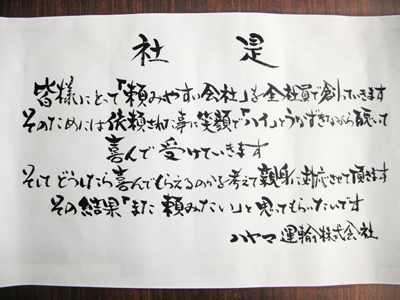 社是
皆様にとって「頼みやすい会社」を全社員で創っていきます
そのためには依頼された事に笑顔で「ハイ」とうなずきながら聴いて
喜んで受けていきます
そしてどうしたら喜んでもらえるのかを考えて親身に対応させて頂きます
その結果「また頼みたい」と思ってもらいたいです
ハヤマ運輸株式会社